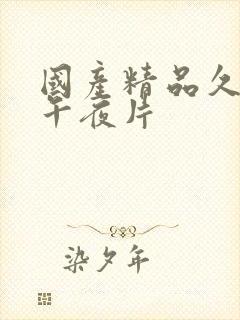 國產精品久
午夜片
染夕年